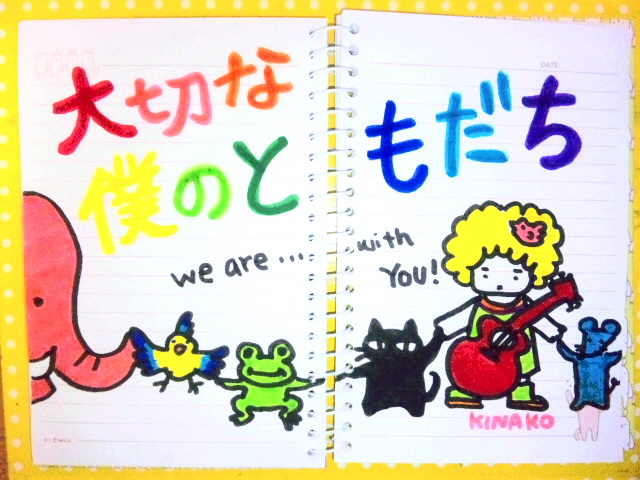 大切な
僕のともだち
we are... with
YOU!
KINAKO
DATE